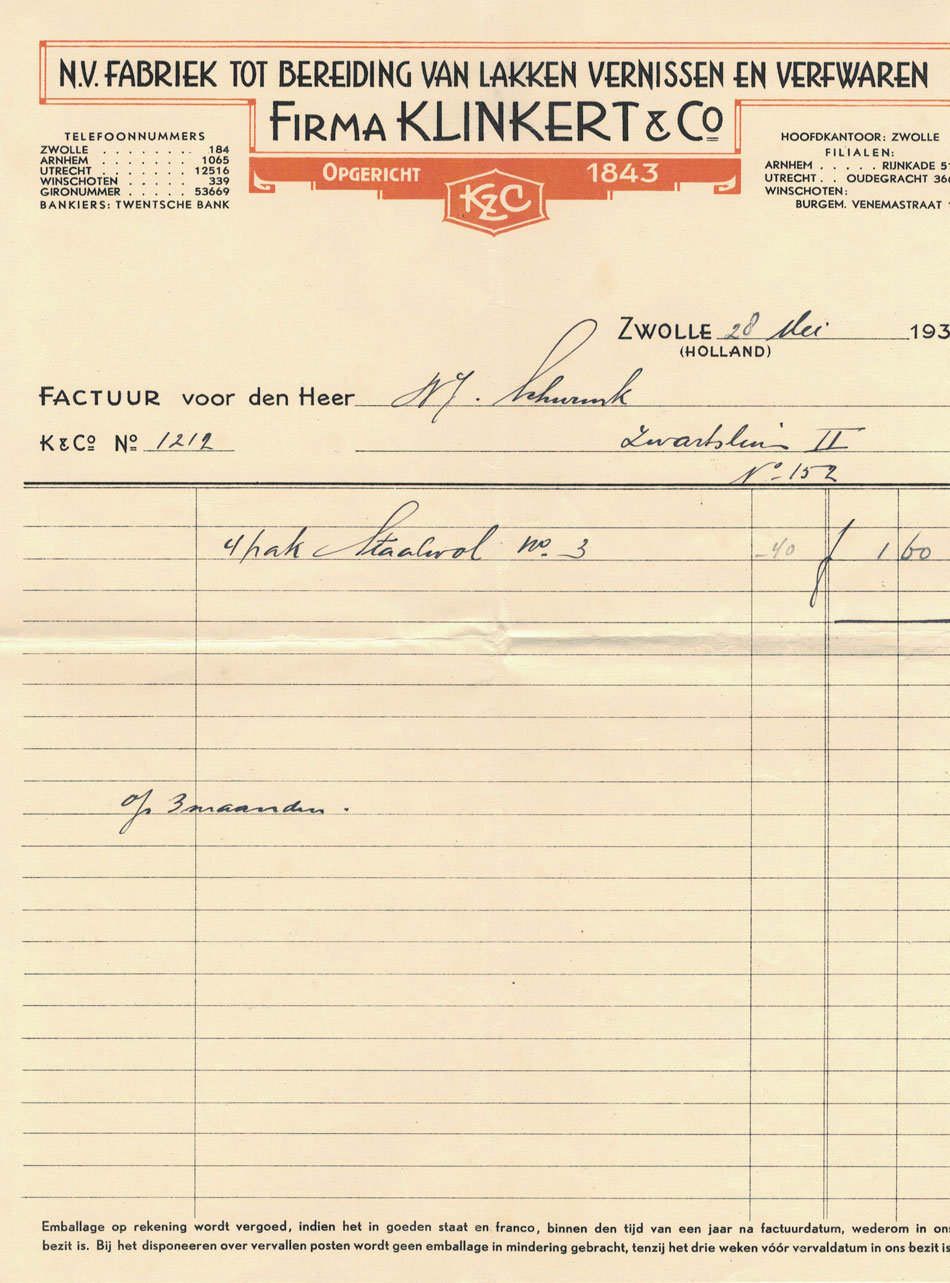 N.V. FABRIEK TOT BEREIDING VAN LAKKEN VERNISSEN EN VERFWAREN
FIRMA KLINKERT & Co
OPGERICHT 1843
K&C
TELEFOONNUMMERS
ZWOLLE . . . . . . . 184
ARNHEM . . . . . . . 1065
UTRECHT . . . . . . 12516
WINSCHOTEN . . . . . 339
GIRONUMMER . . . . . 53669
BANKIERS: TWENTSCHE BANK
HOOFDKANTOOR: ZWOLLE
FILIALEN:
ARNHEM . . . . . RIJNKADE 5
UTRECHT . . OUDEGRACHT 36
WINSCHOTEN:
BURGEM. VENEMASTRAAT
ZWOLLE 28 Mei 193
(HOLLAND)
FACTUUR voor den Heer
K&Co No 1212 Zwartsluis II
No 152
4 pak Staalwol no. 3 -40 f 1 60
op 3 maanden.
Emballage op rekening wordt vergoed, indien het in goeden staat en franco, binnen den tijd van een jaar na factuurdatum, wederom in ons
bezit is. Bij het disponeeren over vervallen posten wordt geen emballage in mindering gebracht, tenzij het drie weken vóór vervaldatum in ons bezit is